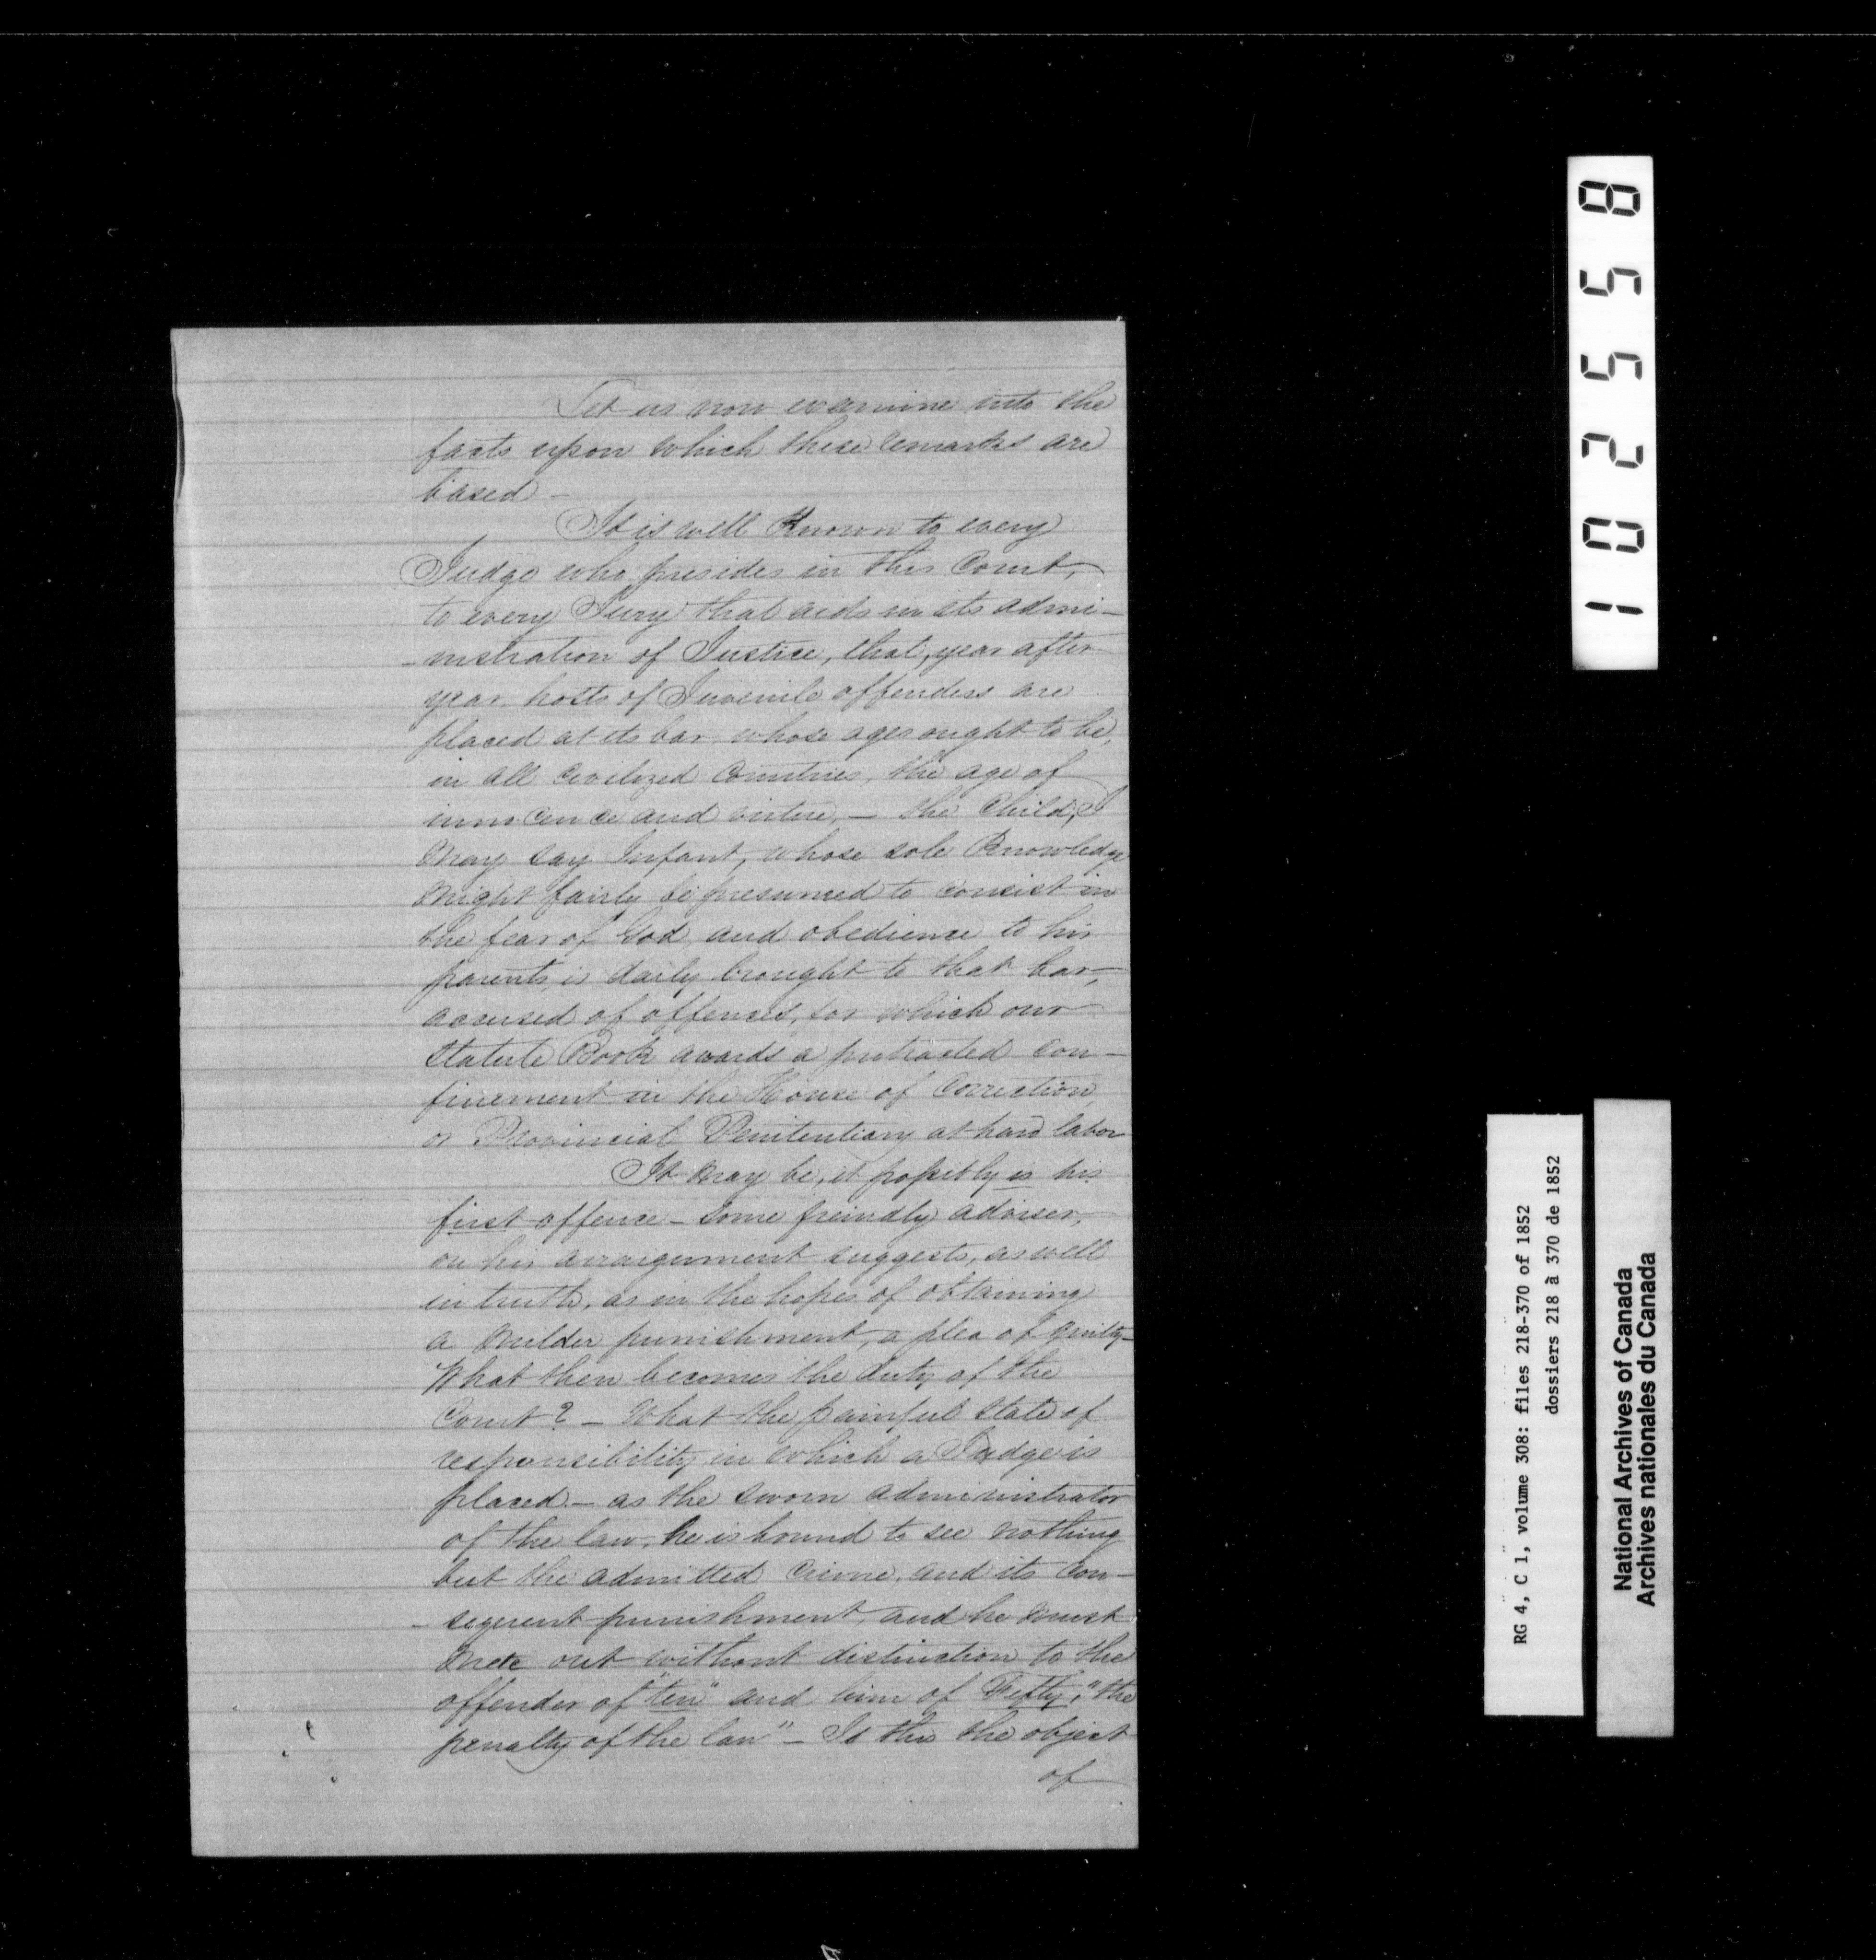 Let us now examine into the
facts upon which these remarks are
based –
It is well Known to every
Judge who presides in this Court,
to every Jury that aids in its admi–
–nistration of Justice, that, year after
year, hosts of Juvenile offenders are
placed at its bar, whose ages ought to be,
in all Civilized Countries, the age of
innocence and virtue, – the Child, I
may say Infant, whose sole Knowledge
might fairly be presumed to consist in
the fear of God, and obedience to his
parents, is daily brought to that bar,
accused of offences, for which our
Statute Book awards a protracted con–
finement in the House of Correction,
or Provincial Penitentiary at hard labor
It may be, it possibly is his
first offence – some freindly adviser,
on his arraignment suggests, as well
in truth, as in the hopes of obtaining
a milder punishment, a plea of guilty–
What then becomes the duty of the
Court? – What the painful state of
responsibility in which a Judge is
placed – as the sworn administrator
of the law, he is bound to see nothing
but the admitted Crime, and its Con–
–sequent punishment, and he must
mete out without distinction to the
offender of "ten" and him of Fifty, "the
penalty of the law" – Is this the object
of
102558
RG 4, C 1, volume 308: files 218-370 of 1852
dossiers 218 à 370 de 1852
National Archives of Canada
Archives nationales du Canada